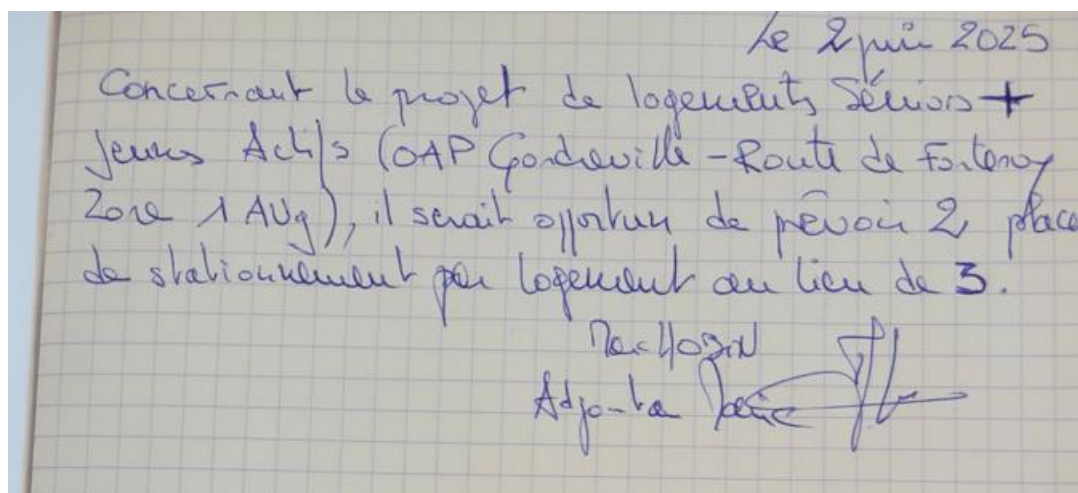 Le 2 juin 2025
Concernant le projet de logements Séniors +
jeunes Actifs (OAP Gondreville - Route de Fontenoy
Zone 1 AUg), il serait opportun de prévoir 2 place
de stationnement par logement au lieu de 3.
Adjointe